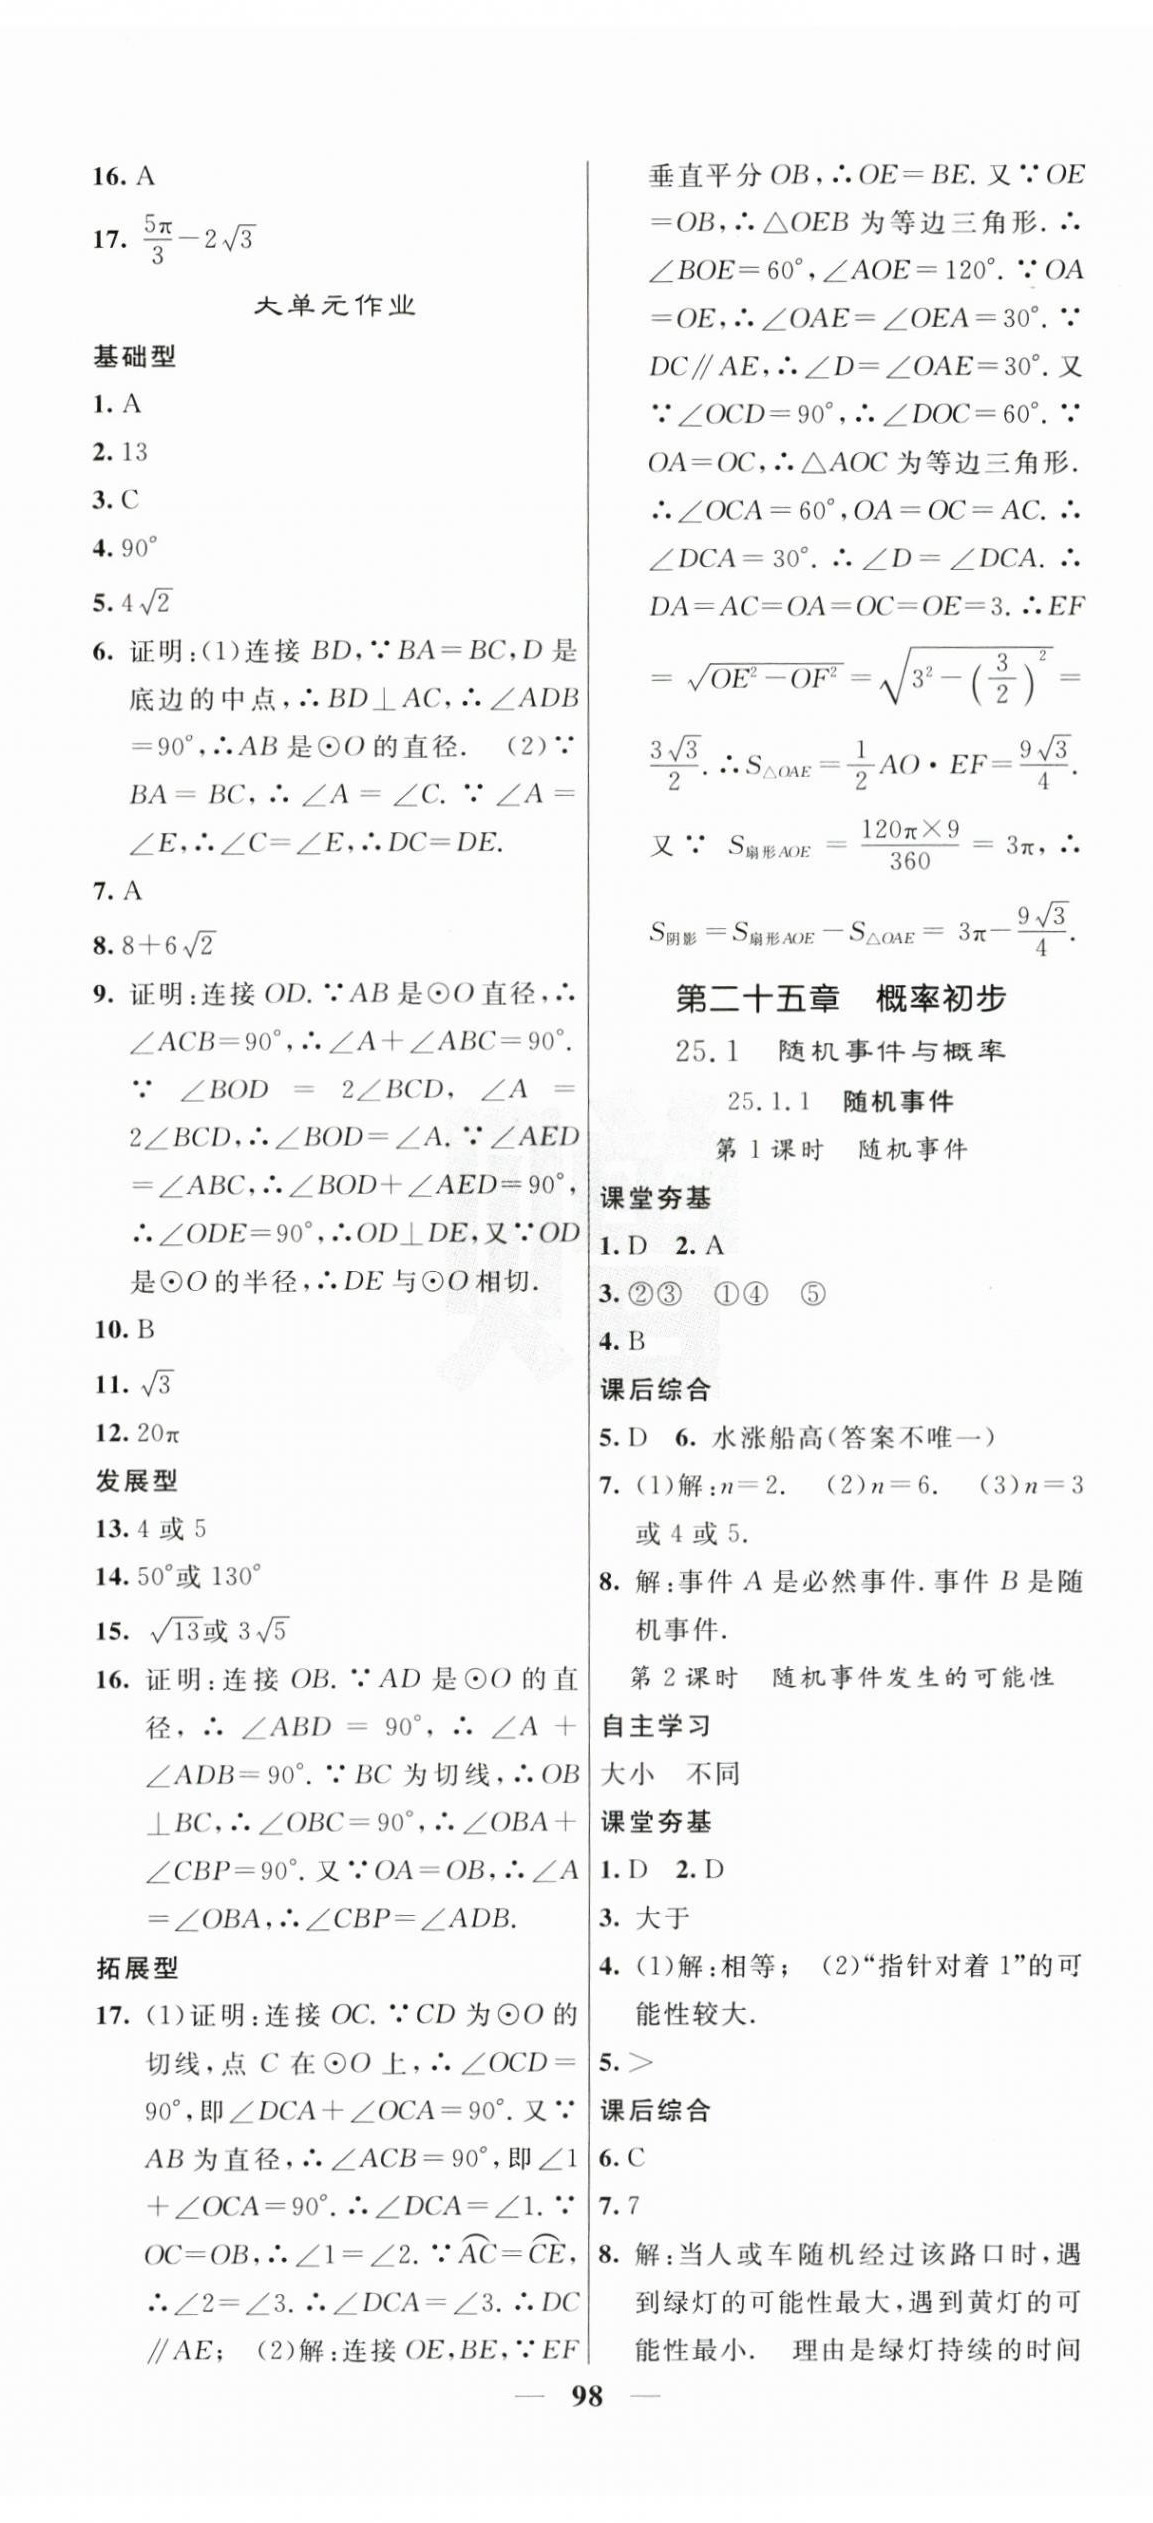 16. A
17. 5π/3－2√3
大单元作业
基础型
1. A
2. 13
3. C
4. 90°
5. 4√2
6. 证明:(1)连接 BD,∵BA＝BC,D 是
底边的中点,∴BD⊥AC,∴∠ADB
＝90°,∴AB 是⊙O 的直径. (2)∵
BA＝BC,∴∠A＝∠C.∵∠A＝
∠E,∴∠C＝∠E,∴DC＝DE.
7. A
8. 8＋6√2
9. 证明:连接 OD.∵AB 是⊙O 直径,∴
∠ACB＝90°,∴∠A＋∠ABC＝90°.
∵ ∠BOD ＝ 2∠BCD, ∠A ＝
2∠BCD,∴∠BOD＝∠A.∵∠AED
＝∠ABC,∴∠BOD＋∠AED＝90°,
∴∠ODE＝90°,∴OD⊥DE,又∵OD
是⊙O 的半径,∴DE 与⊙O 相切.
10. B
11. √3
12. 20π
发展型
13. 4 或 5
14. 50°或 130°
15. √13或 3√5
16. 证明:连接 OB.∵AD 是⊙O 的直
径,∴∠ABD＝90°,∴∠A＋
∠ADB＝90°.∵BC 为切线,∴OB
⊥BC,∴∠OBC＝90°,∴∠OBA＋
∠CBP＝90°.又∵OA＝OB,∴∠A
＝∠OBA,∴∠CBP＝∠ADB.
拓展型
17. (1)证明:连接 OC.∵CD 为⊙O 的
切线,点 C 在⊙O 上,∴∠OCD＝
90°,即∠DCA＋∠OCA＝90°.又∵
AB 为直径,∴∠ACB＝90°,即∠1
＋∠OCA＝90°.∴∠DCA＝∠1.∵
OC＝OB,∴∠1＝∠2.∵A͡C＝C͡E,
∴∠2＝∠3.∴∠DCA＝∠3.∴DC
∥AE; (2)解:连接 OE,BE,∵EF
垂直平分 OB,∴OE＝BE.又∵OE
＝OB,∴△OEB 为等边三角形.∴
∠BOE＝60°,∠AOE＝120°.∵OA
＝OE,∴∠OAE＝∠OEA＝30°.∵
DC∥AE,∴∠D＝∠OAE＝30°.又
∵∠OCD＝90°,∴∠DOC＝60°.∵
OA＝OC,∴△AOC 为等边三角形.
∴∠OCA＝60°,OA＝OC＝AC.∴
∠DCA＝30°.∴∠D＝∠DCA.∴
DA＝AC＝OA＝OC＝OE＝3.∴EF
＝√(OE²－OF²)＝√(3²－(3/2)²)＝
3√3/2.∴S△OAE＝1/2 AO·EF＝9√3/4.
又∵ S扇形AOE＝120π×9/360＝3π,∴
S阴影＝S扇形AOE－S△OAE＝3π－9√3/4.
第二十五章 概率初步
25.1 随机事件与概率
25.1.1 随机事件
第 1 课时 随机事件
课堂夯基
1. D 2. A
3. ②③ ①④ ⑤
4. B
课后综合
5. D 6. 水涨船高(答案不唯一)
7. (1)解:n＝2. (2)n＝6. (3)n＝3
或 4 或 5.
8. 解:事件 A 是必然事件.事件 B 是随
机事件.
第 2 课时 随机事件发生的可能性
自主学习
大小 不同
课堂夯基
1. D 2. D
3. 大于
4. (1)解:相等; (2)“指针对着 1”的可
能性较大.
5. ＞
课后综合
6. C
7. 7
8. 解:当人或车随机经过该路口时,遇
到绿灯的可能性最大,遇到黄灯的可
能性最小. 理由是绿灯持续的时间
— 98 —